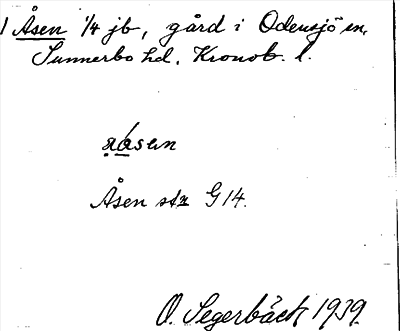 1 Åsen 1/4 jb, gård i Odensjö sn,
Sunnerbo hd, Kronob. l.
åsen
Åsen stz G 14.
O. Segerbäck 1939.